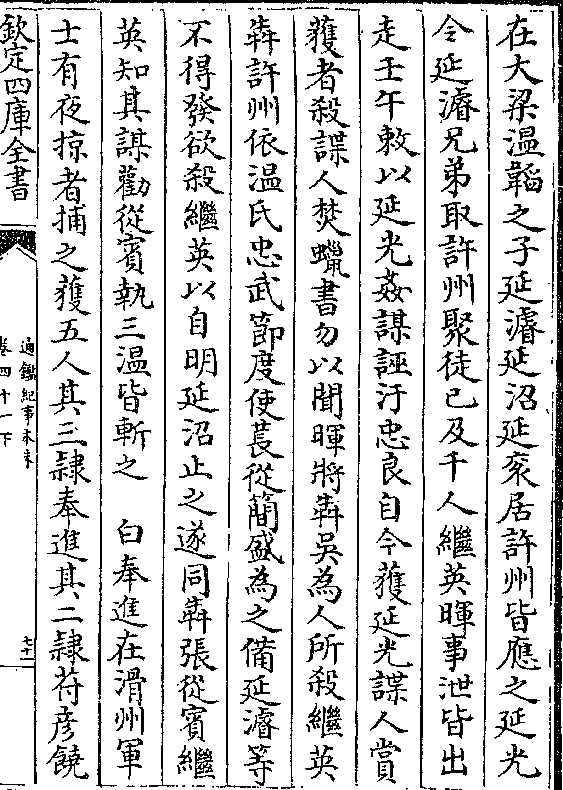 在大梁温韜之子延濬延沼延衮居許州皆應之延光
令延濬兄弟取許州聚徒已及千人繼英暉事泄皆出
走壬午敕以延光姦謀誣汙忠良自今獲延光諜人賞
獲者殺諜人焚蠟書勿以聞暉將犇吳為人所殺繼英
犇許州依温氏忠武節度使萇從簡盛為之備延濬等
不得發欲殺繼英以自明延沼止之遂同犇張從賓繼
英知其謀勸從賓執三温皆斬之　白奉進在滑州軍
士有夜掠者捕之獲五人其三隸奉進其二隸苻彥饒
欽定四庫全書
通鑑紀事本末
卷四十一下
七十二